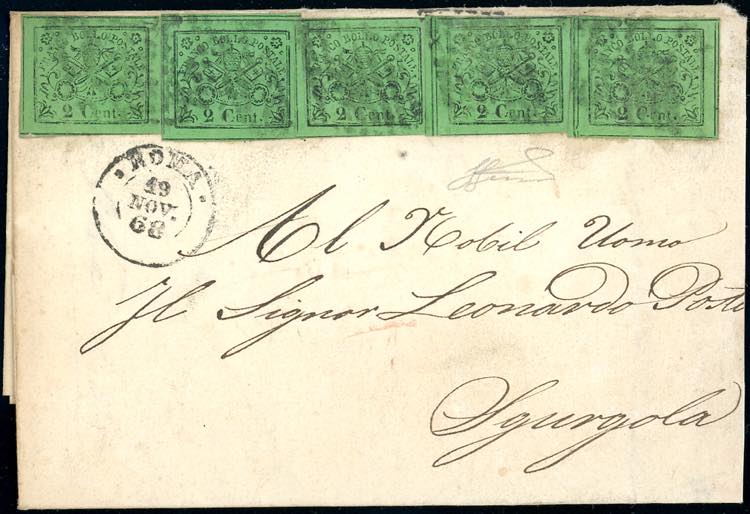 FRANCO BOLLO POSTALE FRANCO BOLLO POSTALE FRANCO BOLLO POSTALE FRANCO BOLLO POSTALE FRANCO BOLLO POSTALE
2 Cent. 2 Cent. 2 Cent. 2 Cent. 2 Cent.
ROMA
19
NOV.
68
Al Nobil Uomo
Il Signor Leonardo
Sgurgola